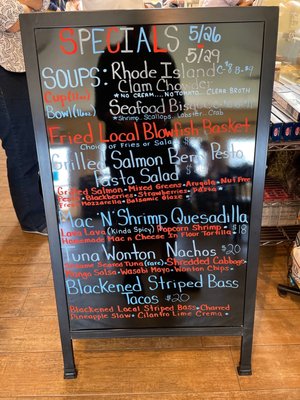 SPECIALS 5/26
5/29
SOUPS: Rhode Island
Clam Chowder
Cup (8oz) *NO CREAM, NO TOMATO, CLEAR BROTH
Bowl (16oz) Seafood Bisque
*Shrimp, Scallops, Lobster, Crab
Fried Local Blowfish Basket
Choice of Fries or Salad
Grilled Salmon Berry Pesto
Pasta Salad
Grilled Salmon • Mixed Greens • Arugula • Nut Free
Blackberries • Strawberries • Pasta
Mozzarella • Balsamic Glaze
Mac 'N' Shrimp Quesadilla
Lava Lava (Kinda Spicy) Popcorn Shrimp $18
Homemade Mac n Cheese In Flour Tortilla
Tuna Wonton Nachos $20
Seared Tuna (rare) • Shredded Cabbage
Mango Salsa • Wasabi Mayo • Wonton Chips
Blackened Striped Bass
Tacos $20
Blackened Local Striped Bass • Charred
Pineapple Slaw • Cilantro Lime Crema